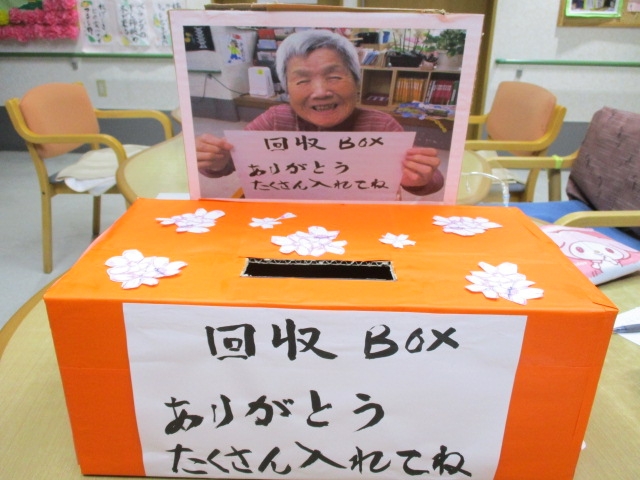 回収 BOX
ありがとう
たくさん入れてね
回収 BOX
ありがとう
たくさん入れてね